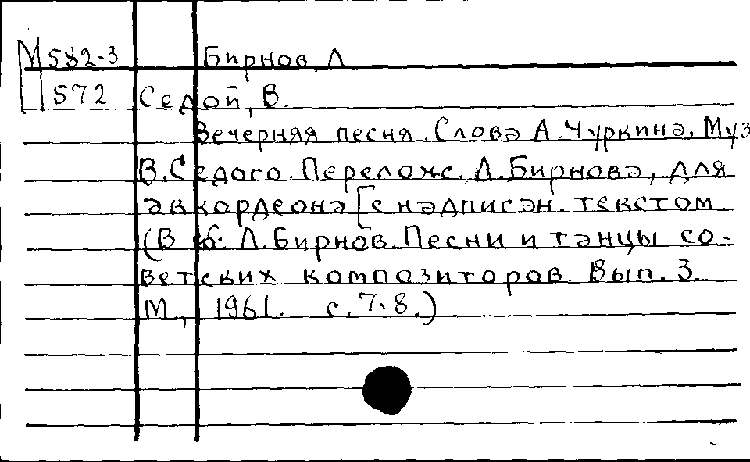 М 582-3 Бирнов Л
572 Седой, В.
Вечерняя песня. Слова А. Чуркина, Муз
В. Седого. Перелож. Л. Бирнова, для
аккордеона [с надписан. текстом
(В сб: Л. Бирнов. Песни и танцы со-
ветских композиторов Вып. 3.
М., 1961. с. 7-8.)